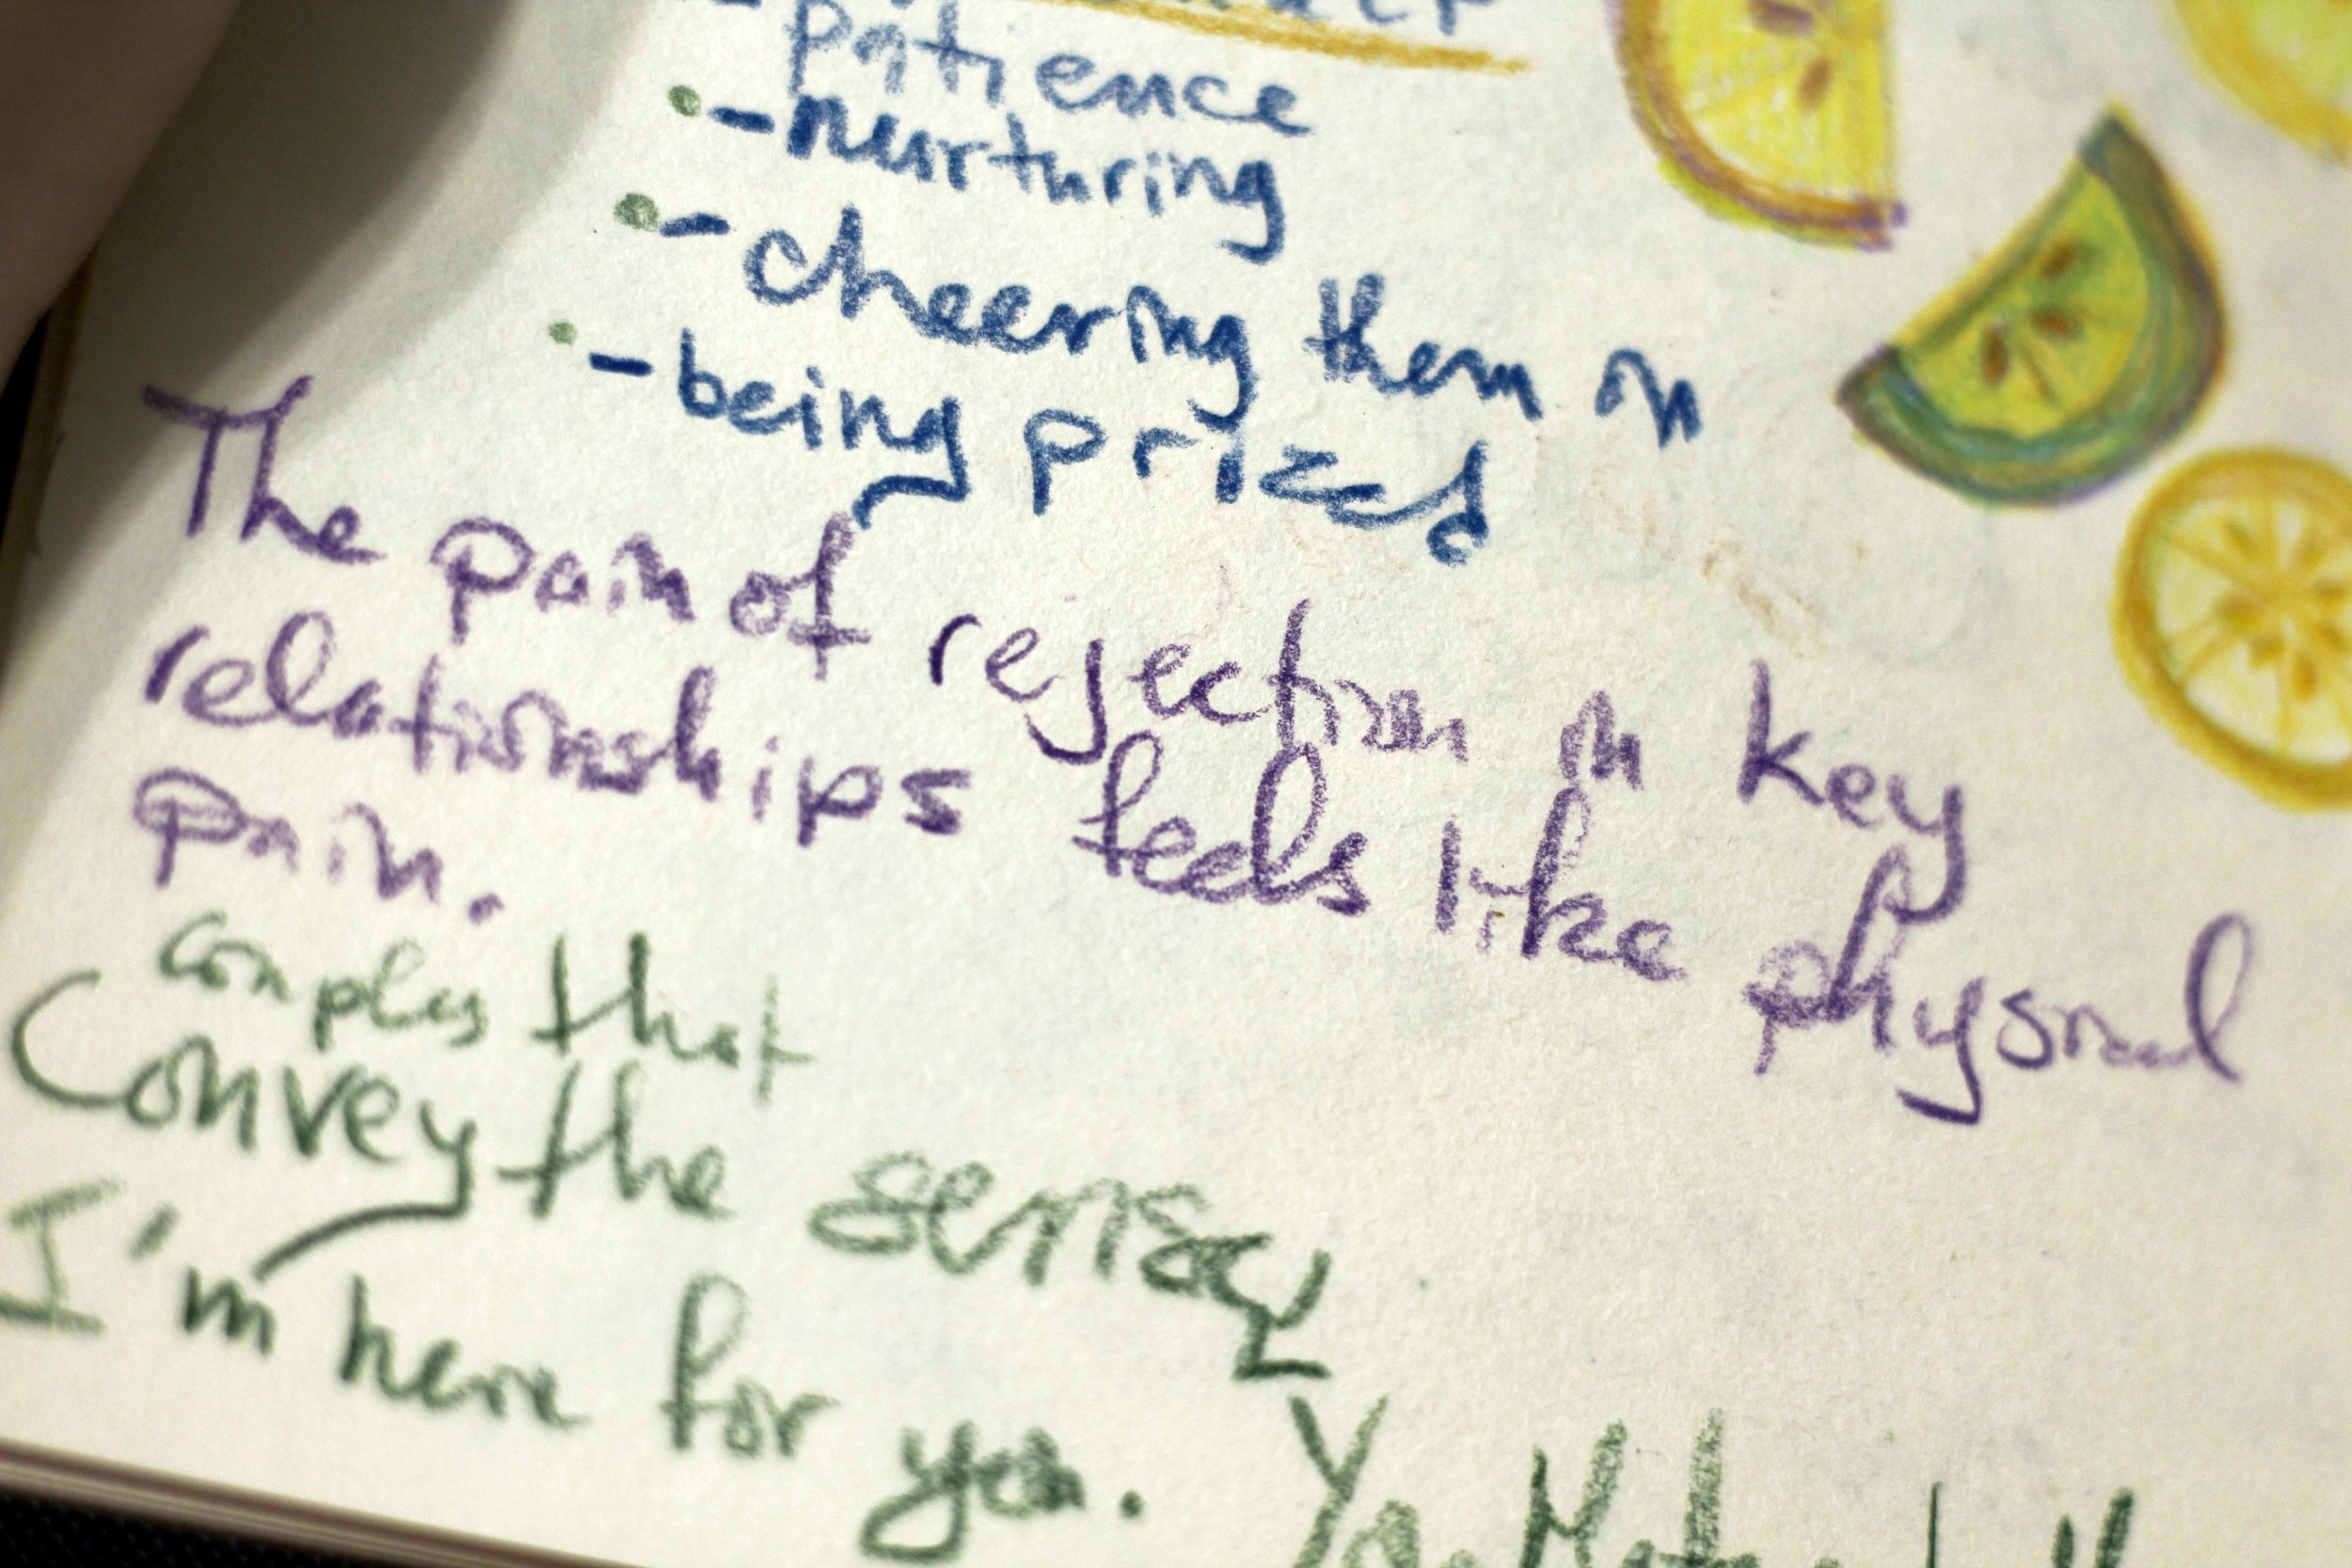 Patience
- nurturing
- cheering them on
- being prized
The pain of rejection in key
relationships feels like physical
pain.
couples that
Convey the sense
I'm here for you.